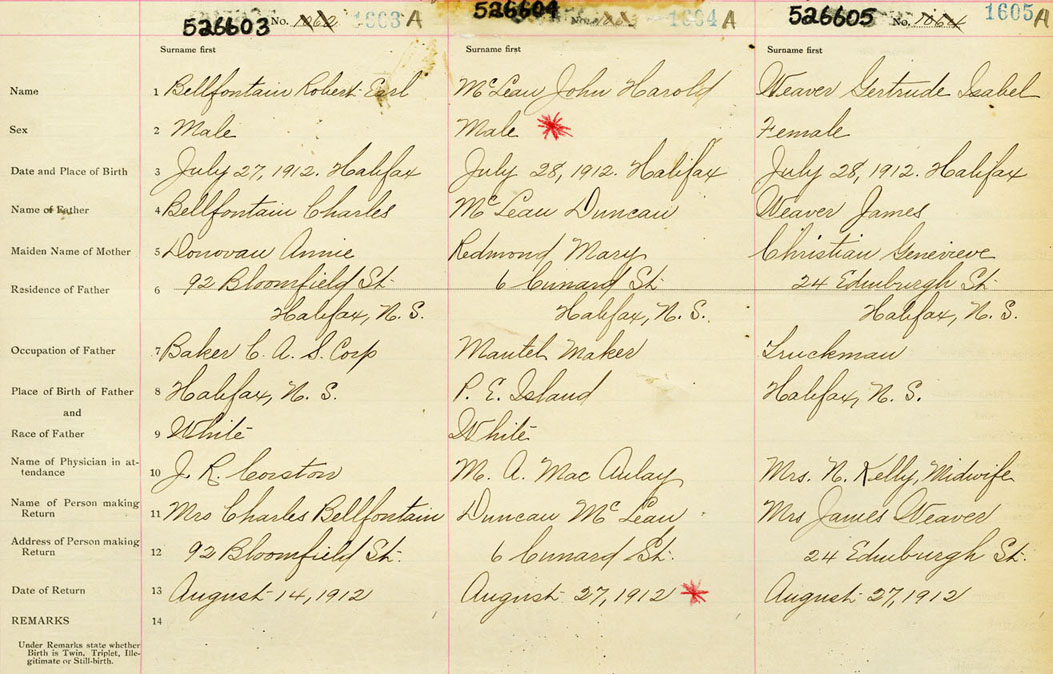 526603 No. 1062 1663 A 526604 No. 1664 A 526605 No. 1064 1605 A
Surname first Surname first Surname first
Name 1 Bellfontain Robert Earl McLean John Harold Weaver Gertrude Isabel
Sex 2 Male Male Female
Date and Place of Birth 3 July 27, 1912. Halifax July 28, 1912. Halifax July 28, 1912. Halifax
Name of Father 4 Bellfontain Charles McLean Duncan Weaver James
Maiden Name of Mother 5 Donovan Annie Redmond Mary Christian Genevieve
Residence of Father 6 92 Bloomfield St. 6 Cunard St. 24 Edinburgh St.
Halifax, N. S. Halifax, N. S. Halifax, N. S.
Occupation of Father 7 Baker C. A. S. Corp Mantel Maker Truckman
Place of Birth of Father 8 Halifax, N. S. P. E. Island Halifax, N. S.
and
Race of Father 9 White White
Name of Physician in at-
tendance 10 J. R. Corston M. A. MacAulay Mrs. N. Kelly, Midwife
Name of Person making
Return 11 Mrs Charles Bellfontain Duncan McLean Mrs James Weaver
Address of Person making
Return 12 92 Bloomfield St. 6 Cunard St. 24 Edinburgh St.
Date of Return 13 August 14, 1912 August 27, 1912 August 27, 1912
REMARKS 14
Under Remarks state whether
Birth is Twin, Triplet, Ille-
gitimate or Still-birth.